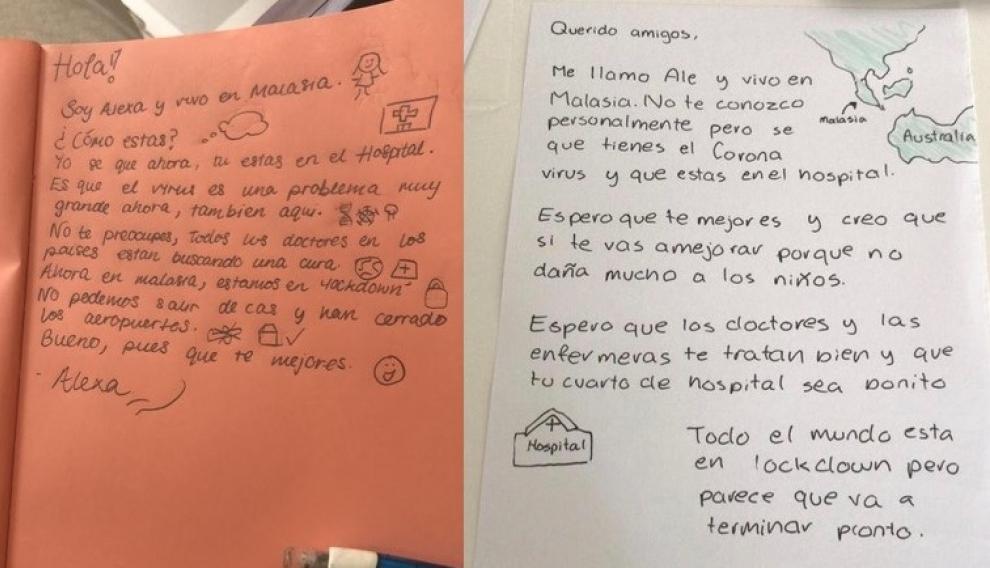 Hola!!
Soy Alexa y vivo en Malasia.
¿Cómo estas?
Yo se que ahora, tu estas en el Hospital.
Es que el virus es una problema muy
grande ahora, tambien aqui.
No te preocupes, Todos los doctores en los
paises estan buscando una cura.
Ahora en malasia, estamos en "lockdown"
No podemos salir de cas y han cerrado
los aeropuertos.
Bueno, pues que te mejores.
Alexa
Querido amigos,
Me llamo Ale y vivo en
Malasia. No te conozco
personalmente pero se
que tienes el Corona
virus y que estas en el hospital.
Malasia
Australia
Espero que te mejores y creo que
si te vas a mejorar porque no
daña mucho a los niños.
Espero que los doctores y las
enfermeras te tratan bien y que
tu cuarto de hospital sea bonito
Hospital
Todo el mundo esta
en lockdown pero
parece que va a
terminar pronto.